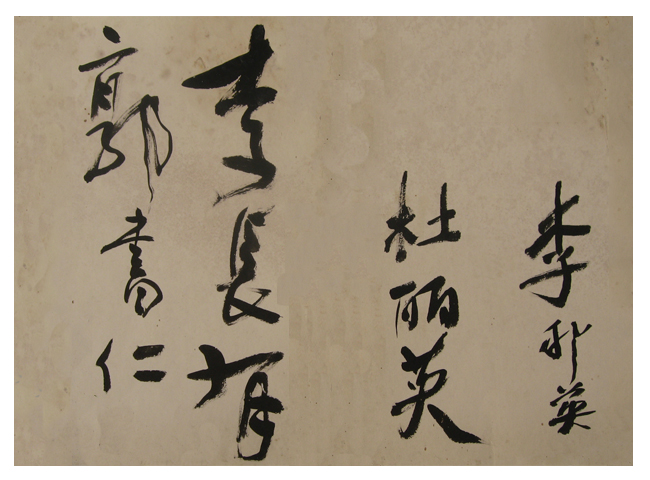 李利英
杜丽英
李長有
郭書仁